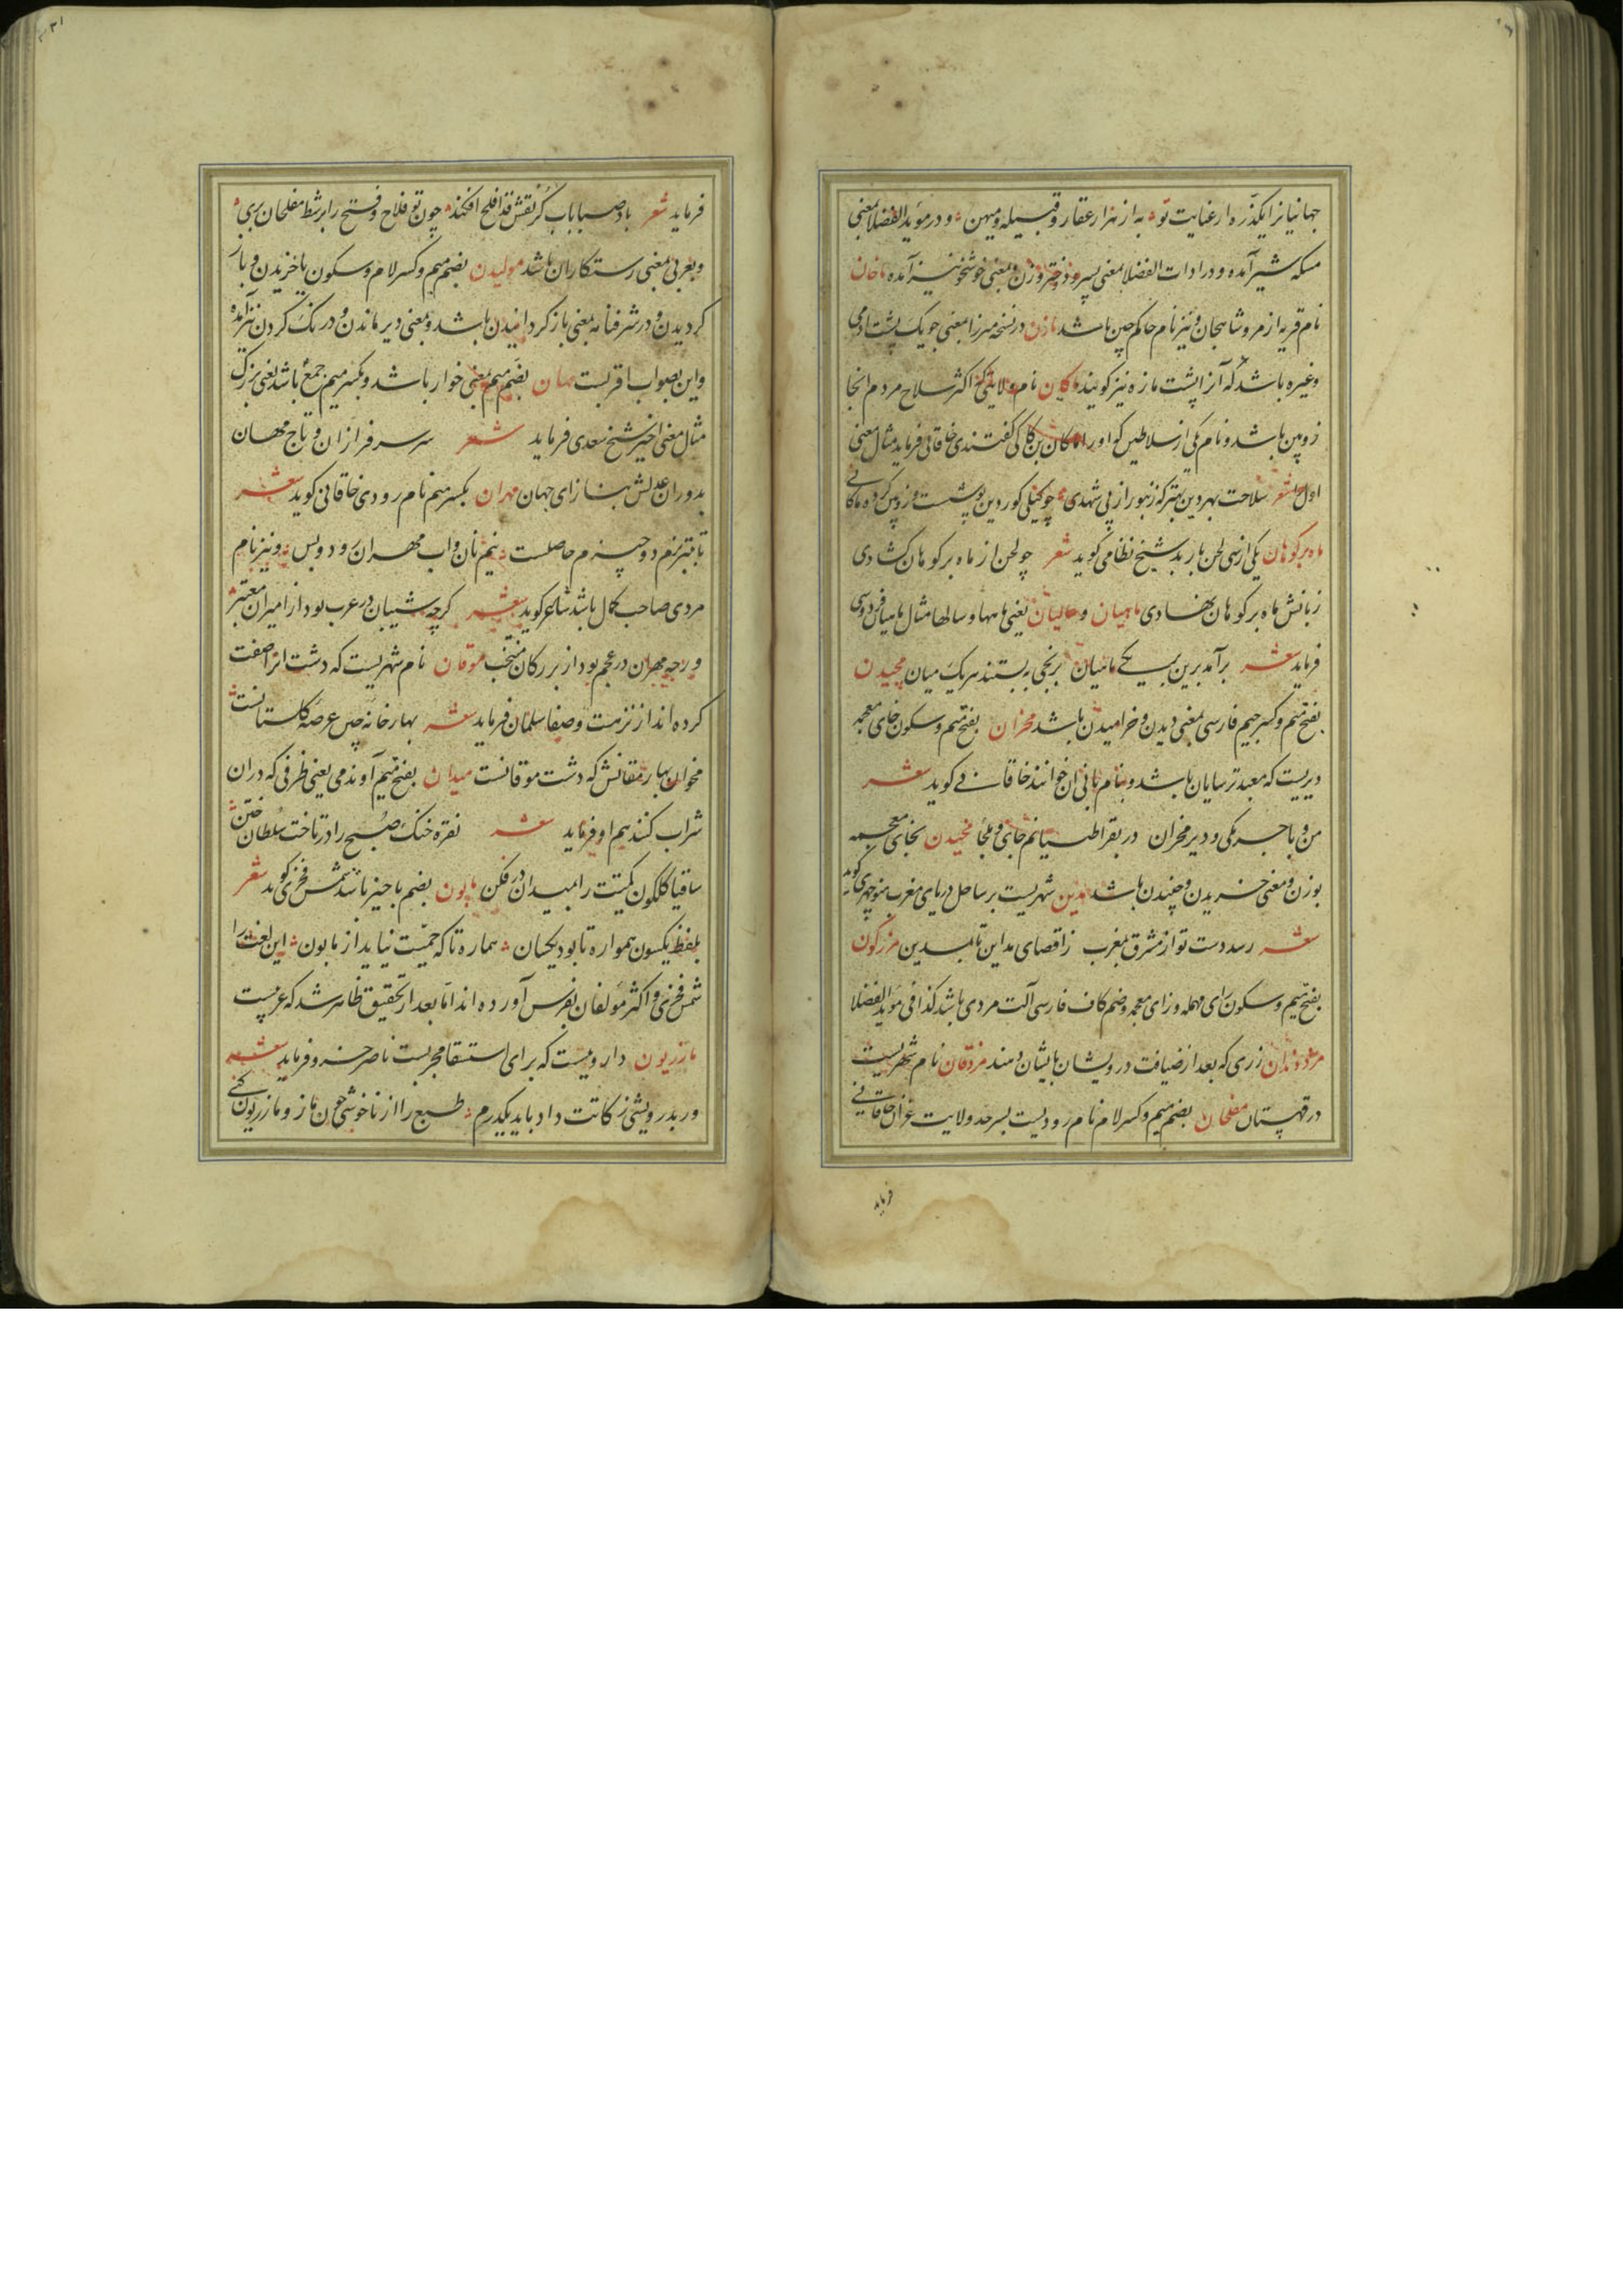 جهانیانرا یکذره ار عنایت تو به از هزار عقار و قبیله و میهن و در مؤید الفضلا بمعنی
مسکه شیر آمده و در ادات الفضلا بمعنی پسر و دختر و زن و بمعنی خوشخو نیز آمده ماخان
نام قریه از مرو شاهجان و نیز نام حاکم چین باشد مازن در نسخه میرزا بمعنی جویک پشت آدمی
وغیره باشد که آنرا پشت مازه نیز کویند ماکان نام ولایتی که اکثر سلاح مردم انجا
زوپین باشد و نام یکی از سلاطین کو اورا ماکان بن کاکی کفتندی خاقانی فرماید مثال معنی
اول شعر سلاحت بهر دین بهتر که زنبور از پی شهدی چو کیلی کور دین پوشست و زوپین کرده ماکانی
ماه بر کوهان یکی از سی لحن باربد شیخ نظامی کوید شعر چو لحن از ماه بر کوهان کشادی
زبانش ماه بر کوهان نهادی ماهیان و سالیان یعنی ماهها و سالها مثال ماهیان فردوسی
فرماید شعر برآمد برین بر یکی ماهیان برنجی به بستند هر یک میان مجیدن
بفتح میم و کسر جیم فارسی بمعنی دیدن و خرامیدن باشد مخران بفتح میم و سکون خای معجمه
دیریست که معبد ترسایان باشد و بنام بانی ان خوانند خاقانی کوید شعر
من و باجرمکی و دیر مخران در بقراطیانم جای و ملجأ مخیدن بخای معجمه
بوزن و معنی خزیدن و چنیدن باشد مدین شهریست بر ساحل دریای مغرب منوچهری کوید
شعر رسد دست تو از مشرق بمغرب ز اقصای مداین تا بمدین مرزکون
بفتح میم و سکون رای مهمله و زای معجمه و ضم کاف فارسی آلت مردی باشد کذا فی مؤید الفضلا
مزد دندان زری که بعد از ضیافت درویشان بایشان دهند مزدقان نام شهریست
در قهستان مفلحان بضم میم و کسر لام نام رودیست بسرحد ولایت غزان خاقانی
فرماید
فرماید شعر باد صبا باب کر نقش قد افلح افکند چون تو فلاح و فتح را بر شط مفلحان بری
و بعربی بمعنی رستکاران باشد مولیدن بضم میم و کسر لام و سکون یا خزیدن و باز
کردیدن و در شرفنامه بمعنی باز کردانیدن باشد و بمعنی دیر ماندن و درنک کردن نیز آمده
و این بصواب اقربست مهان بضم میم بمعنی خوار باشد و بکسر میم جمع باشد یعنی بزرک
مثال معنی اخیر شیخ سعدی فرماید شعر سر سرفرازان و تاج مهان
بدوران عدلش بنازای جهان مهران بکسر میم نام رودی خاقانی کوید شعر
تا بتبریزم دو چیزم حاصلست نیم نان و اب مهران رود و بس و نیز نام
مردی صاحب کمال باشد شاعر کوید شعر کرچه شیبان در عرب بود از امیران معتبر
ورچه مهران در عجم بود از بزرکان منتخب موقان نام شهریست که دشت انرا صفت
کرده اند از نزهت و صفا سلمان فرماید شعر بهار خانه چین عرصه کلستانست
مخوان بهار مغانش که دشت موقانست میدان بفتح میم آوندمی یعنی ظرفی که دران
شراب کنند هم او فرماید شعر نقره خنک صبح را در تاخت سلطان ختن
ساقیا کلکون کمیتت را بمیدان در فکن مابون بضم با حیز باشد شمس فخری کوید شعر
بلفظ یکسون همواره تا بود یکسان هماره تا که حمیت نیاید از مابون این لغت را
شمس فخری و اکثر مؤلفان بفرس آورده اند اما بعد از تحقیق ظاهر شد که عربیست
مازریون دارویست که برای استسقا مجربست ناصر خسرو فرماید شعر
ور بدرویشی زکاتت داد باید یکدرم طبع را از ناخوشی چون ماز و مازریون کنی